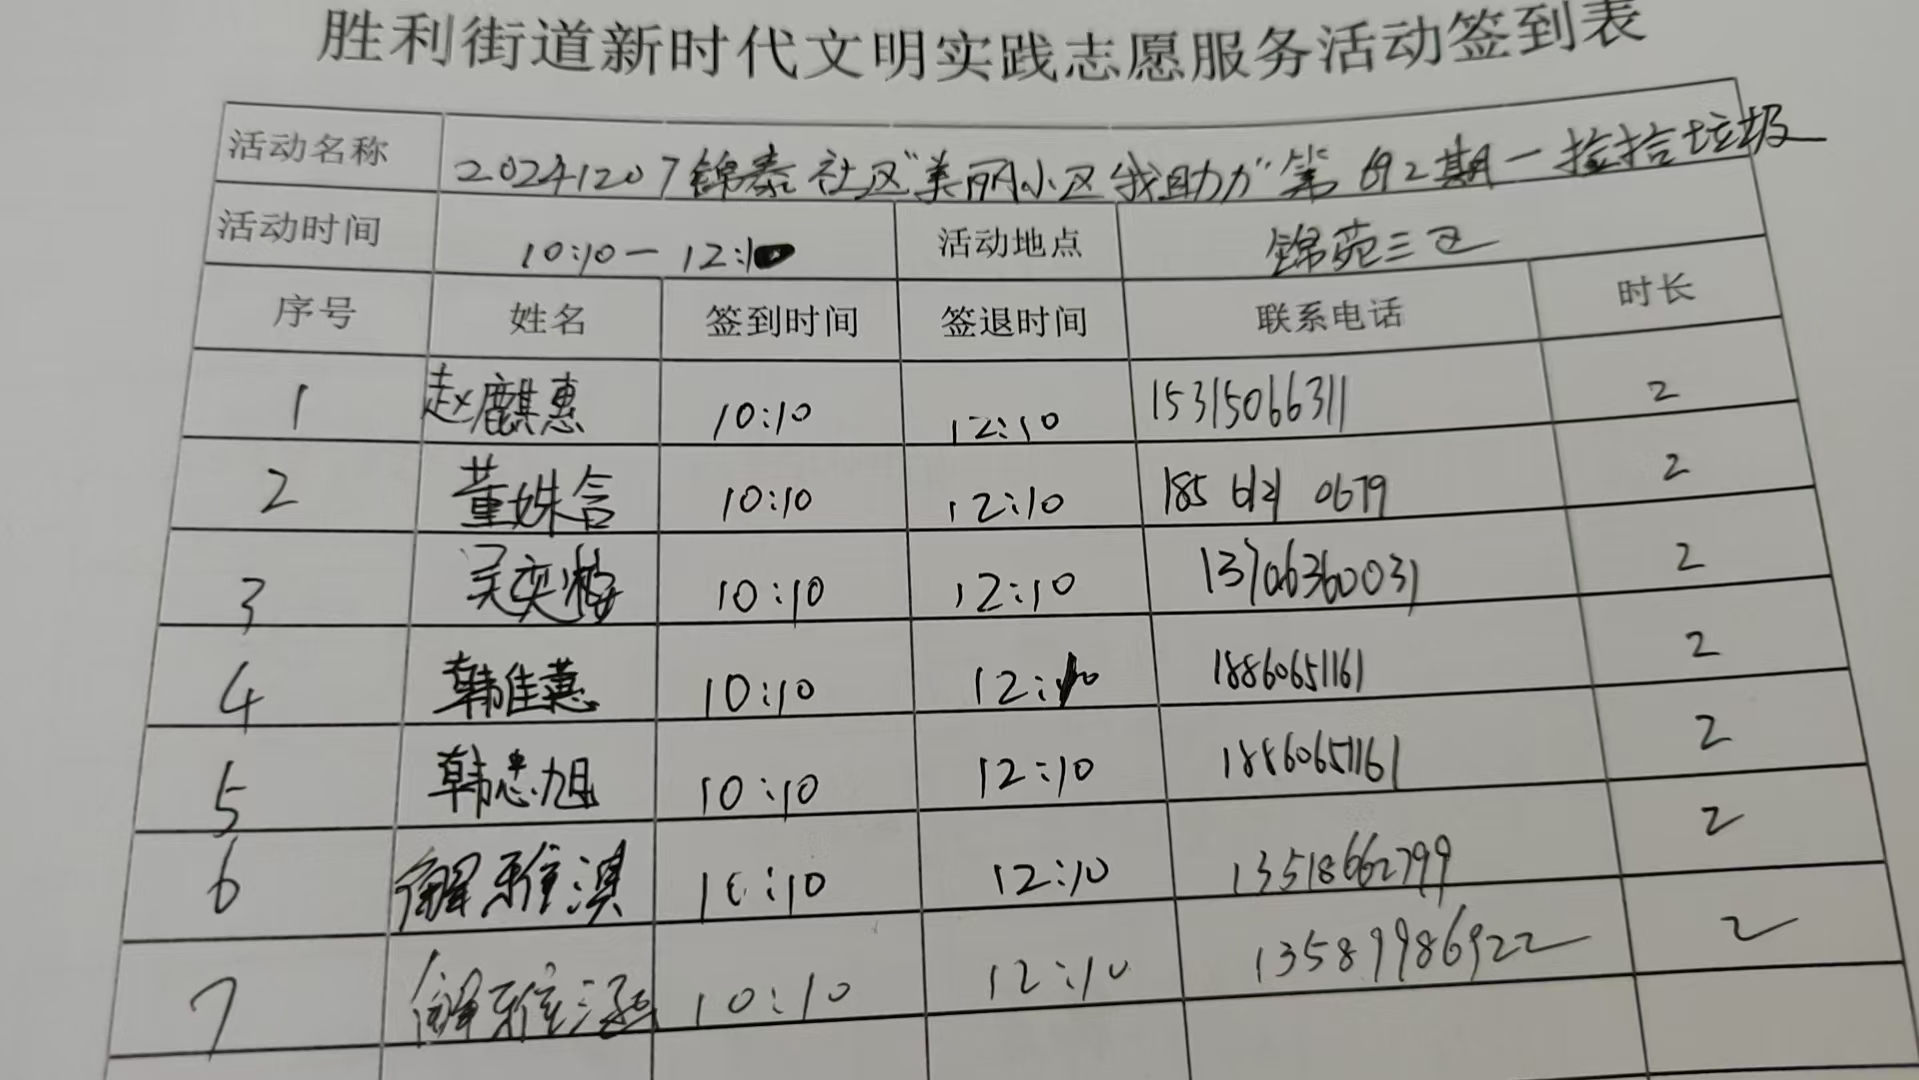 胜利街道新时代文明实践志愿服务活动签到表
活动名称 20241207锦泰社区"美丽小区我助力"第692期一捡拾垃圾
活动时间 10:10－12:10 活动地点 锦苑三区
序号 姓名 签到时间 签退时间 联系电话 时长
1 赵麒惠 10:10 12:10 15315066311 2
2 董姝含 10:10 12:10 185 0679 2
3 吴奕 10:10 12:10 13706360031 2
4 韩佳慧 10:10 12:10 18860651161 2
5 韩忠旭 10:10 12:10 18860651161 2
6 解雅淇 10:10 12:10 13518662799 2
7 解雅涵 10:10 12:10 13589986922 2